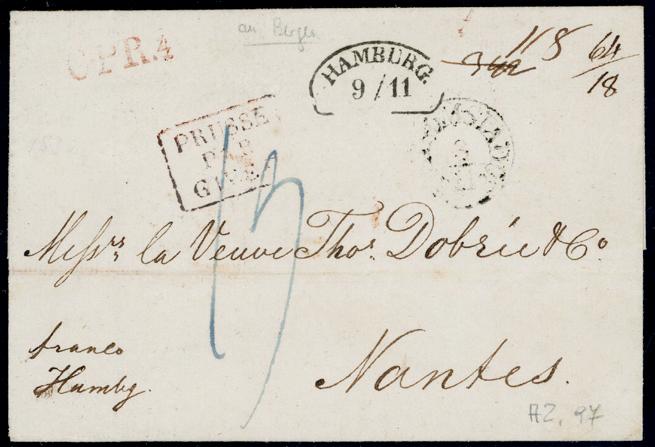 an Bergen
C.P.R.4
HAMBURG.
9/11
118
64
18
PRUSSE
PAR
GIVET
13
Messrs. la Veuve Thos. Dobrée & Co.
franco
Hambg.
Nantes.
AZ. 97